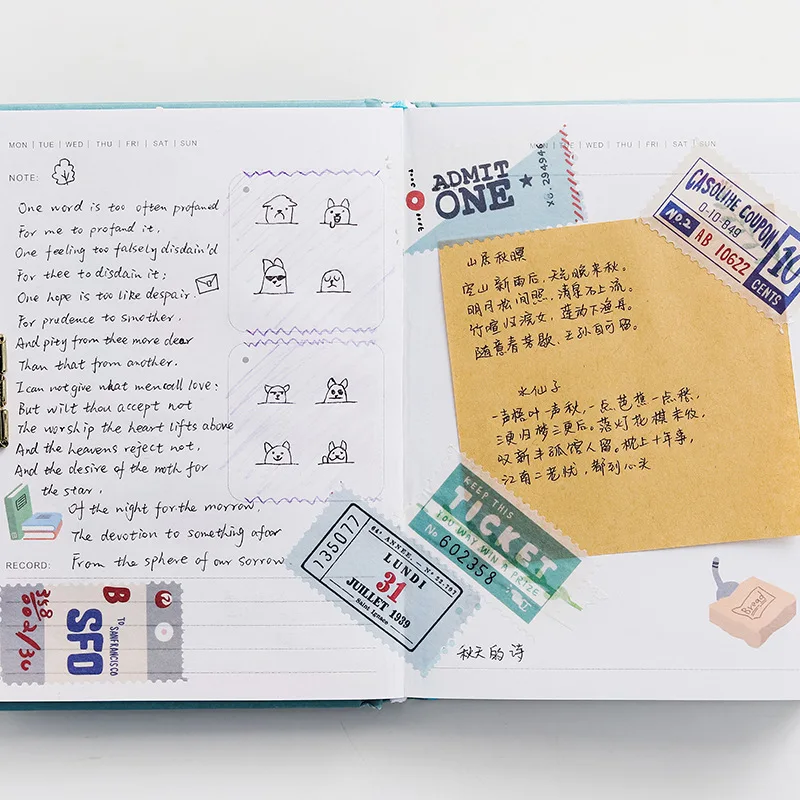 MON | TUE | WED | THU | FRI | SAT | SUN
NOTE:
One word is too often profaned
For me to profand it,
One feeling too falsely disdain'd
For thee to disdain it;
One hope is too like despair.
For prudence to smother.
And pity from thee more dear
Than that from another.
I can not give what men call love:
But wilt thou accept not
The worship the heart lifts above
And the heavens reject not,
And the desire of the moth for
the star,
Of the night for the morrow.
The devotion to something afar
From the sphere of our sorrow
RECORD:
B
358
002/30
TO
SANFRANCISCO
SFO
UE | WED | THU | FRI | SAT | SUN
ADMIT
ONE
294946
GASOLINE COUPON
0-10-849
NO.2
AB 10622
10
CENTS
山居秋暝
空山新雨后,天气晚来秋。
明月松间照,清泉石上流。
竹喧归浣女,莲动下渔舟。
随意春芳歇,王孙自可留。
水仙子
一声梧叶一声秋,一点芭蕉一点愁,
三更归梦三更后。落灯花棋未收,
叹新丰孤馆人留。枕上十年事,
江南二老忧,都到心头
KEEP THIS
TICKET
YOU WAY WIN A PRIZE
No 602358
135077
64e ANNEE. - No 22.797
LUNDI
31
JUILLET 1939
Saint Ignace
Bread
秋天的诗